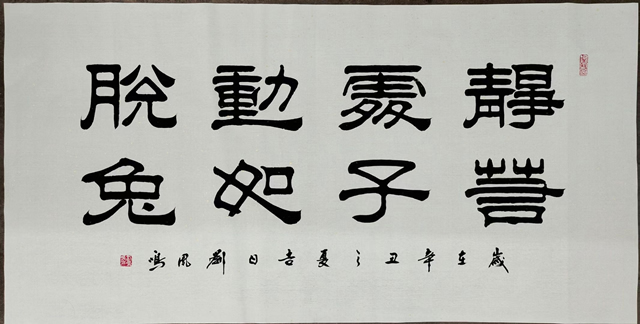 靜若
處子
動如
脫兔
歲在辛丑之夏吉日劉鳳鳴